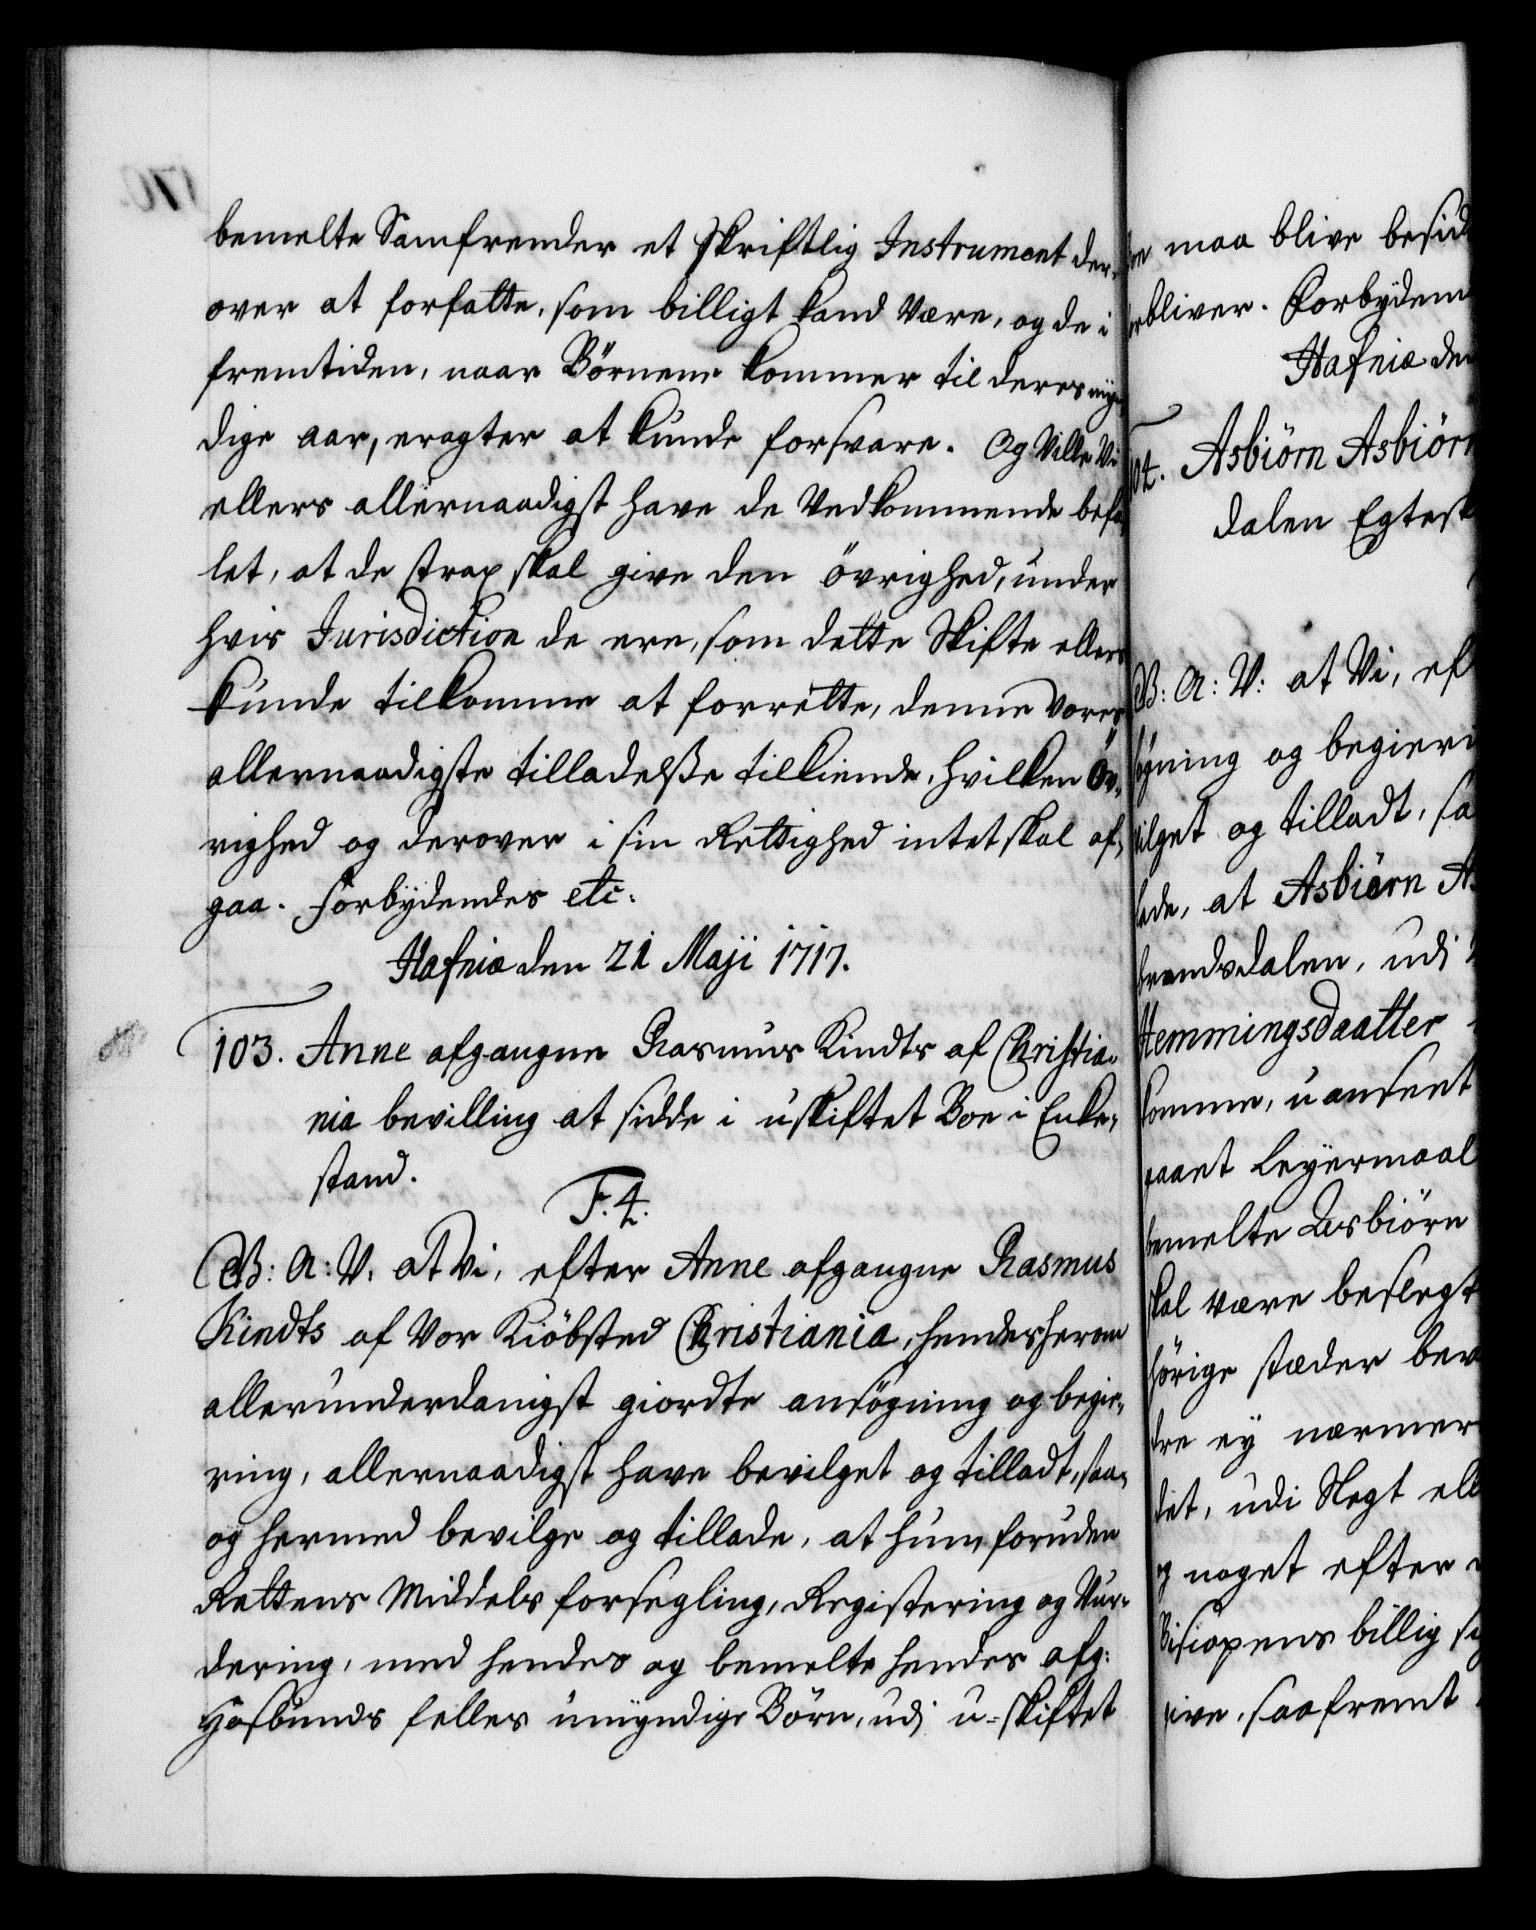 bemelte Samfrender et skriftlig Instrument der-
over at forfatte, som billigt kand være, og de i
fremtiden, naar Börnene kommer til deres myn-
dige aar, eragter at kunde forsvare. Og Ville Vi
ellers allernaadigst have de Vedkommende befa-
let, at de strax skal give den övrighed, under
hvis Jurisdiction de ere, som dette Skifte ellers
kunde tilkomme at forrette, denne vores
allernaadigste tilladelsse tilkiende, hvilken Öv-
righed og derover i sin Rettighed intet skal af-
gaa. Forbydendes etc:
Hafniæ den 21 Maji 1717.
103. Anne afgangne Rasmus Kindts af Christia-
nia bevilling at sidde i uskiftet Boe i Enke-
stand.
F. 4.
G: A: V. at Vi, efter Anne afgangne Rasmus
Kindts af Vor Kiöbsted Christiania, hendes herom
allerunderdanigst giordte ansögning og begie-
ring, allernaadigst have bevilget og tilladt, saa-
og hermed bevilge og tillade, at hun, foruden
Rettens Middels forsegling, Registering og Vur-
dering, med hendes og bemelte hendes afg:
Hosbunds felles umyndige Börn, udi u-skiftet
maa blive besid
bliver. Forbydem
Hafniæ den
104. Asbiörn Asbiörn
dalen Egtesk
G: A: V: at Vi, ef
ögning og begieri
vilget og tilladt, sa
lade, at Asbiörn As
brandsdalen, udi
Hemmingsdaatter
komme, uanseet
gaaet Leyermaal
bemelte Asbiörn
skal være beslegt
hörige stæder bev
dre ey nærmer
det, udi Slegt ell
og noget efter
Bisiopens billig si
give, saafremt